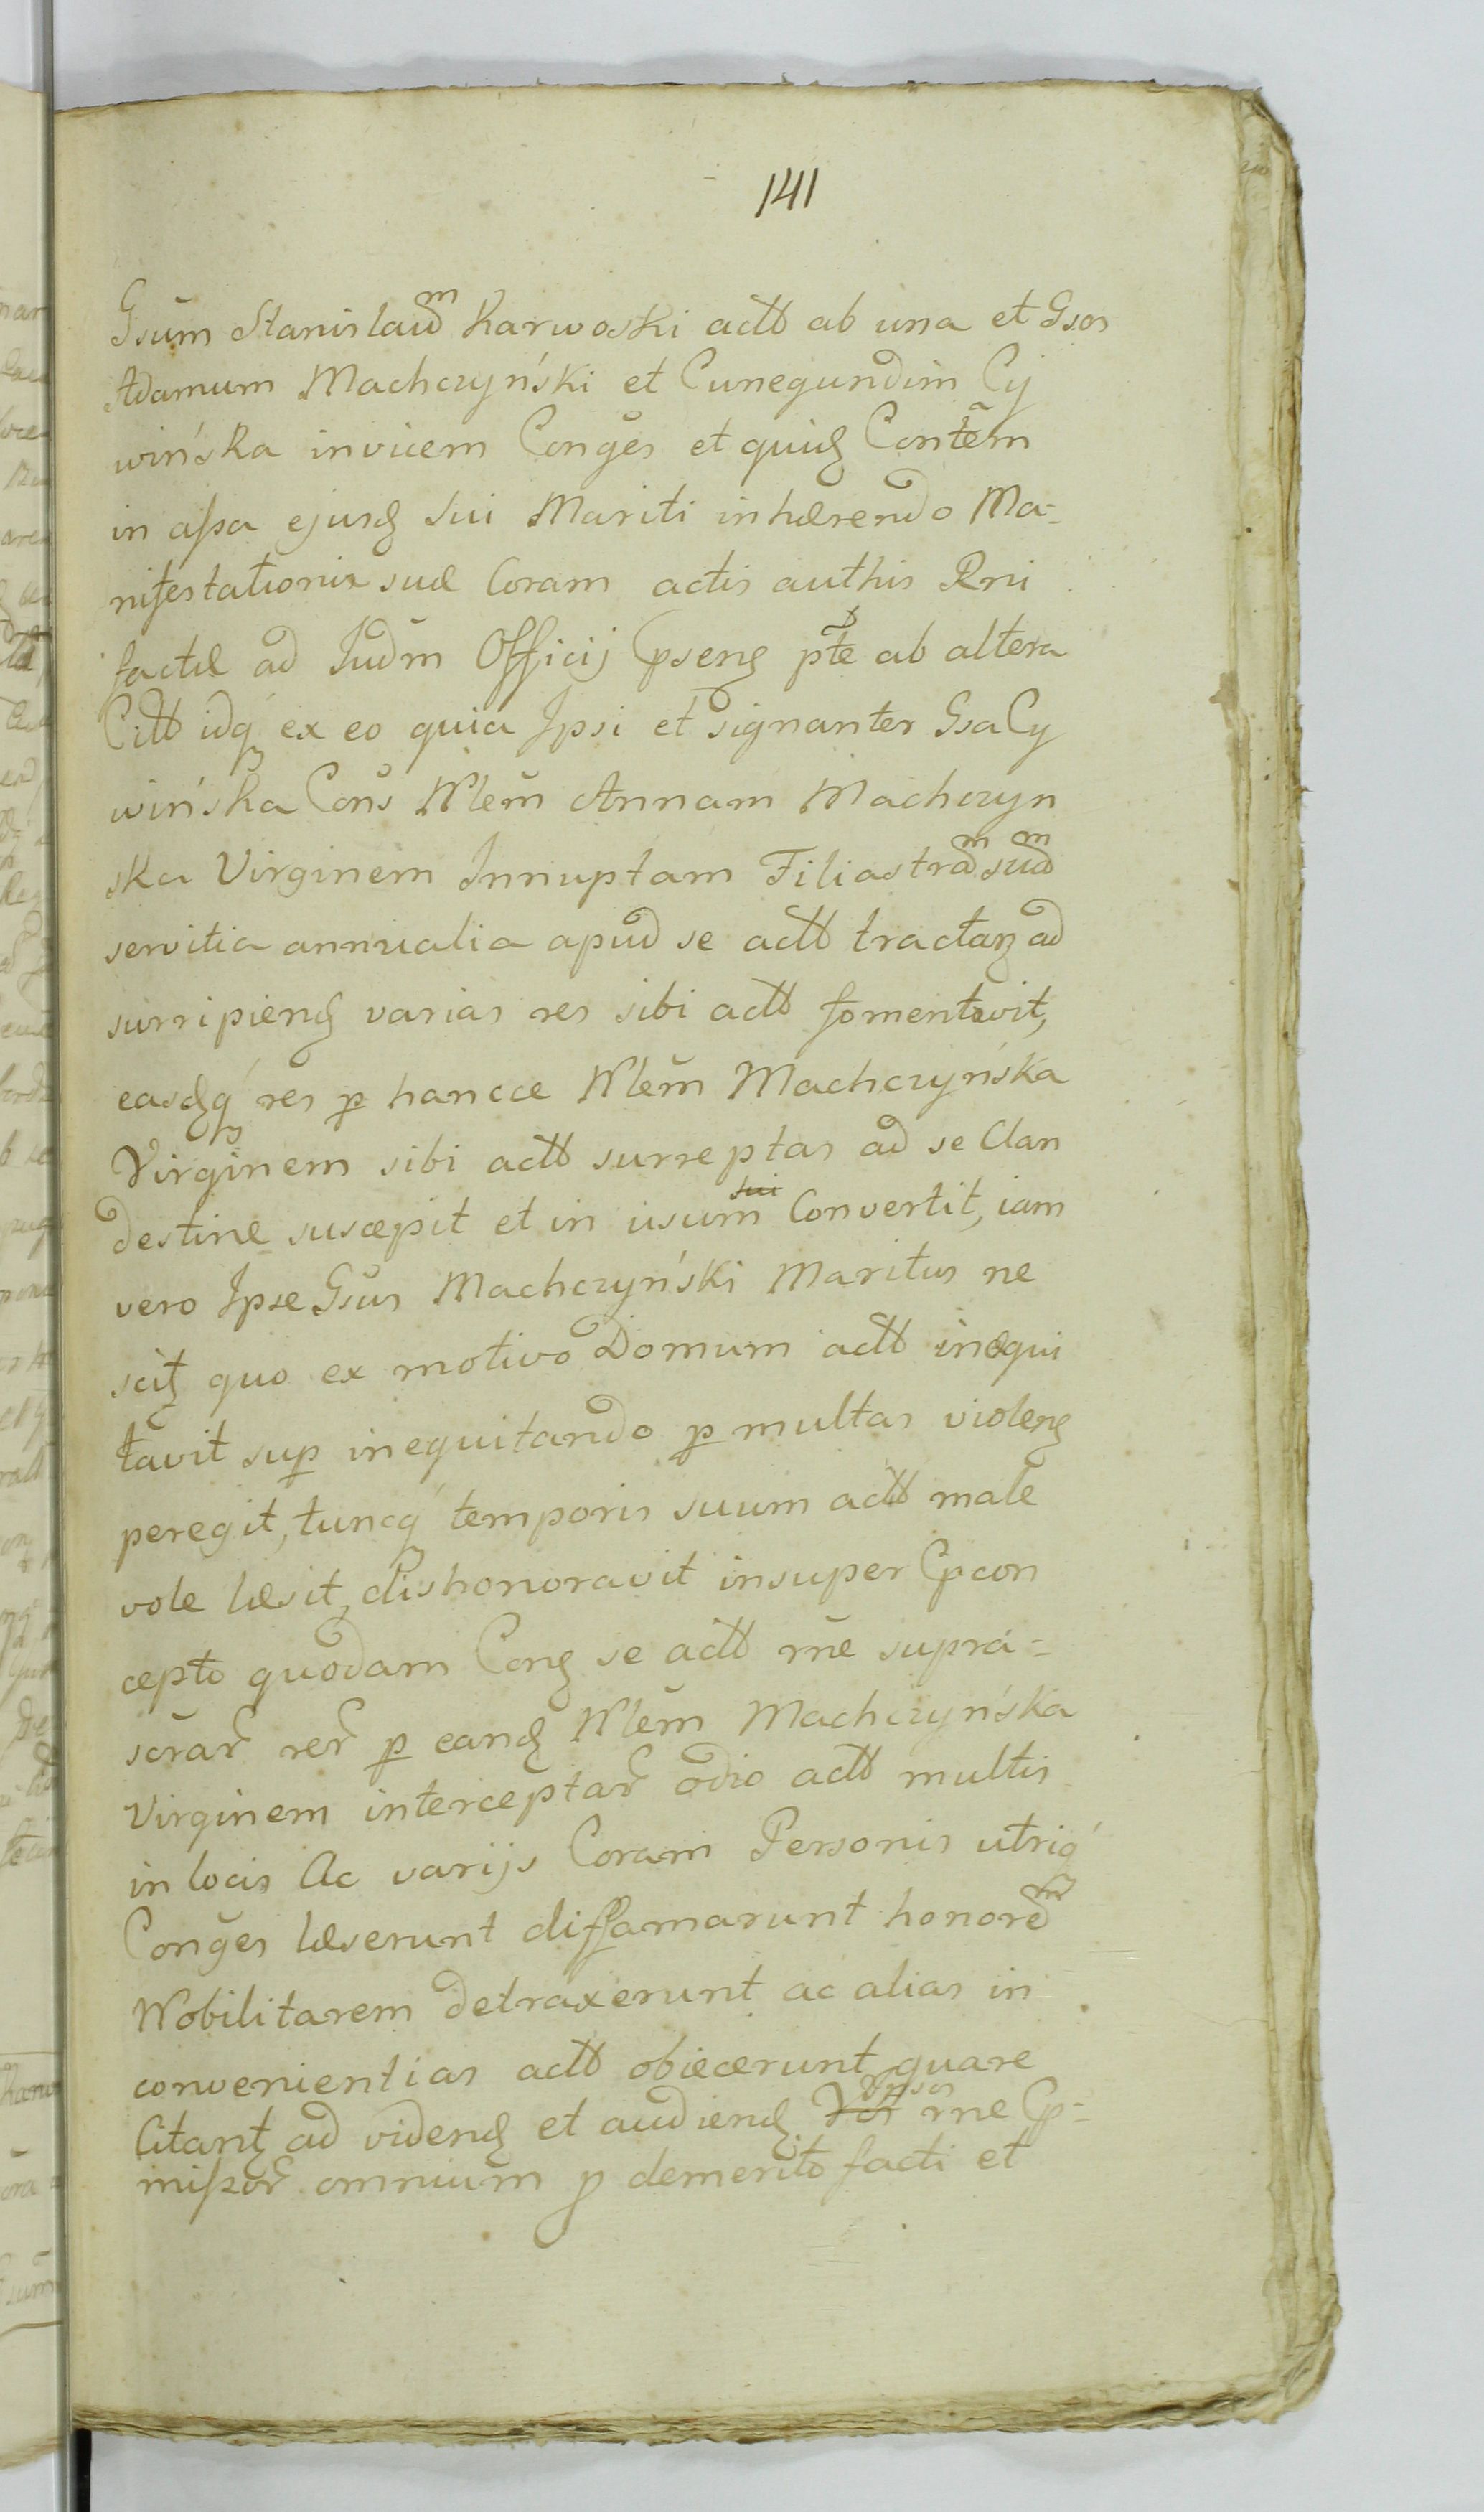 141
Gsum Stanislaum Karwoski actt ab una et Gsos
Adamum Machczyński et Cunegundim Cy
wińska invicem Conges et quid Contem
in assa ejusd sui Mariti inhærendo Ma-
nifestationi suæ Coram actis authis Rni
factæ ad Iudm Officij pseng pte ab altera
Citt idq ex eo quia Ipsi et signanter Gsa Cy
wińska Cons Nlem Annam Machczyn
ska Virginem Innuptam Filiastram suam
servitia annualia apud se actt tractan ad
surripiend varias res sibi actt fomentavit,
easdq res p hancce Nlem Machczyńska
Virginem sibi actt surreptas ad se Clan
destine suscepit et in usum sui Convertit, iam
vero Ipse Gsus Machczyński Maritus ne
scit quo ex motivo Domum actt inequi
tavit sup inequitando p multas violen
peregit, tuncq temporis suum actt male
vole læsit, dishonoravit insuper Con
cepto quodam Cong se actt rne supra-
scrar rer p eand Nlem Machczyńska
Virginem interceptar odio actt multis
in locis Ac varijs Coram Personis utriq
Conges læserunt diffamarunt honorem
Nobilitarem detraxerunt ac alias in
convenientias actt obiecerunt quare
Citant ad vidend et audiend Ipsos rne P-
missor omnium p demerito facti et